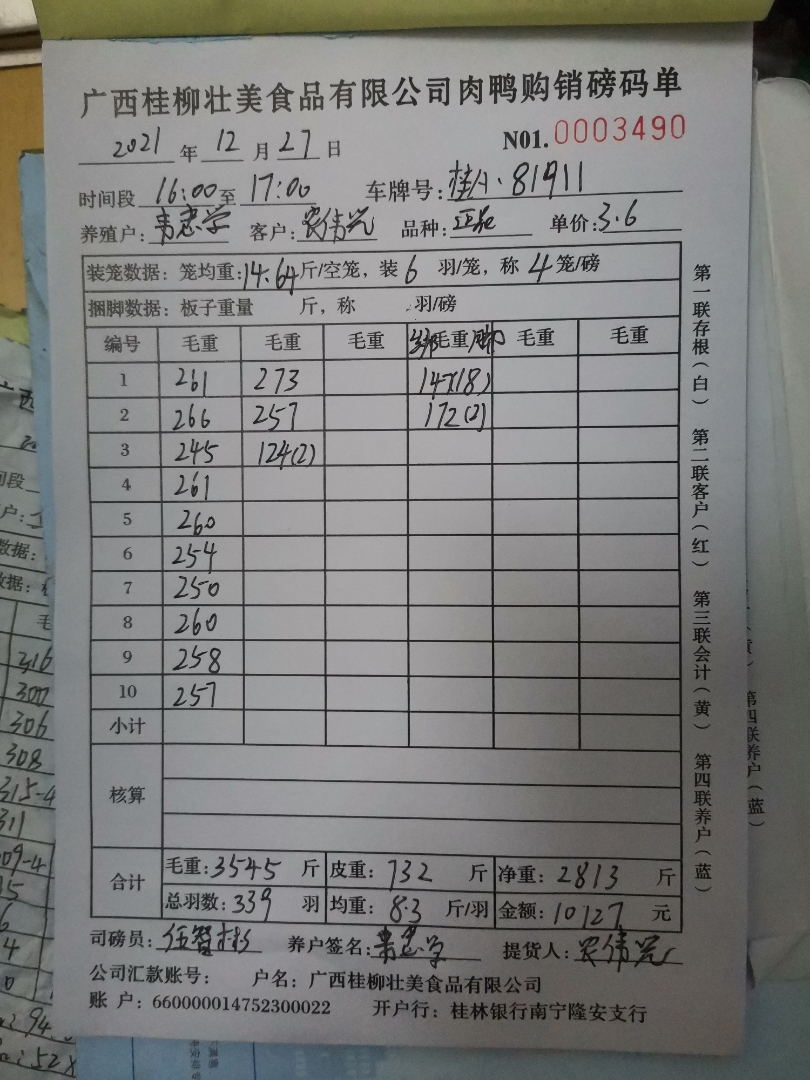 广西桂柳壮美食品有限公司肉鸭购销磅码单
2021 年 12 月 27 日 N01. 0003490
时间段 16:00 至 17:00 车牌号: 桂A·81911
养殖户: 韦忠学 客户: 农伟兴 品种: 单价: 3.6
装笼数据: 笼均重: 14.64 斤/空笼, 装 6 羽/笼, 称 4 笼/磅
捆脚数据: 板子重量 斤, 称 羽/磅
编号 毛重 毛重 毛重 毛重 毛重 毛重
1 261 273 147(18)
2 266 257 172(2)
3 245 124(2)
4 261
5 260
6 254
7 250
8 260
9 258
10 257
小计
核算
合计 毛重: 3545 斤 皮重: 732 斤 净重: 2813 斤
总羽数: 339 羽 均重: 8.3 斤/羽 金额: 10127 元
司磅员: 养户签名: 韦忠学 提货人: 农伟兴
公司汇款账号: 户名: 广西桂柳壮美食品有限公司
账 户: 660000014752300022 开户行: 桂林银行南宁隆安支行
第一联存根(白) 第二联客户(红) 第三联会计(黄) 第四联养户(蓝)
第四联养户(蓝)
316
300
306
308
315-4
311